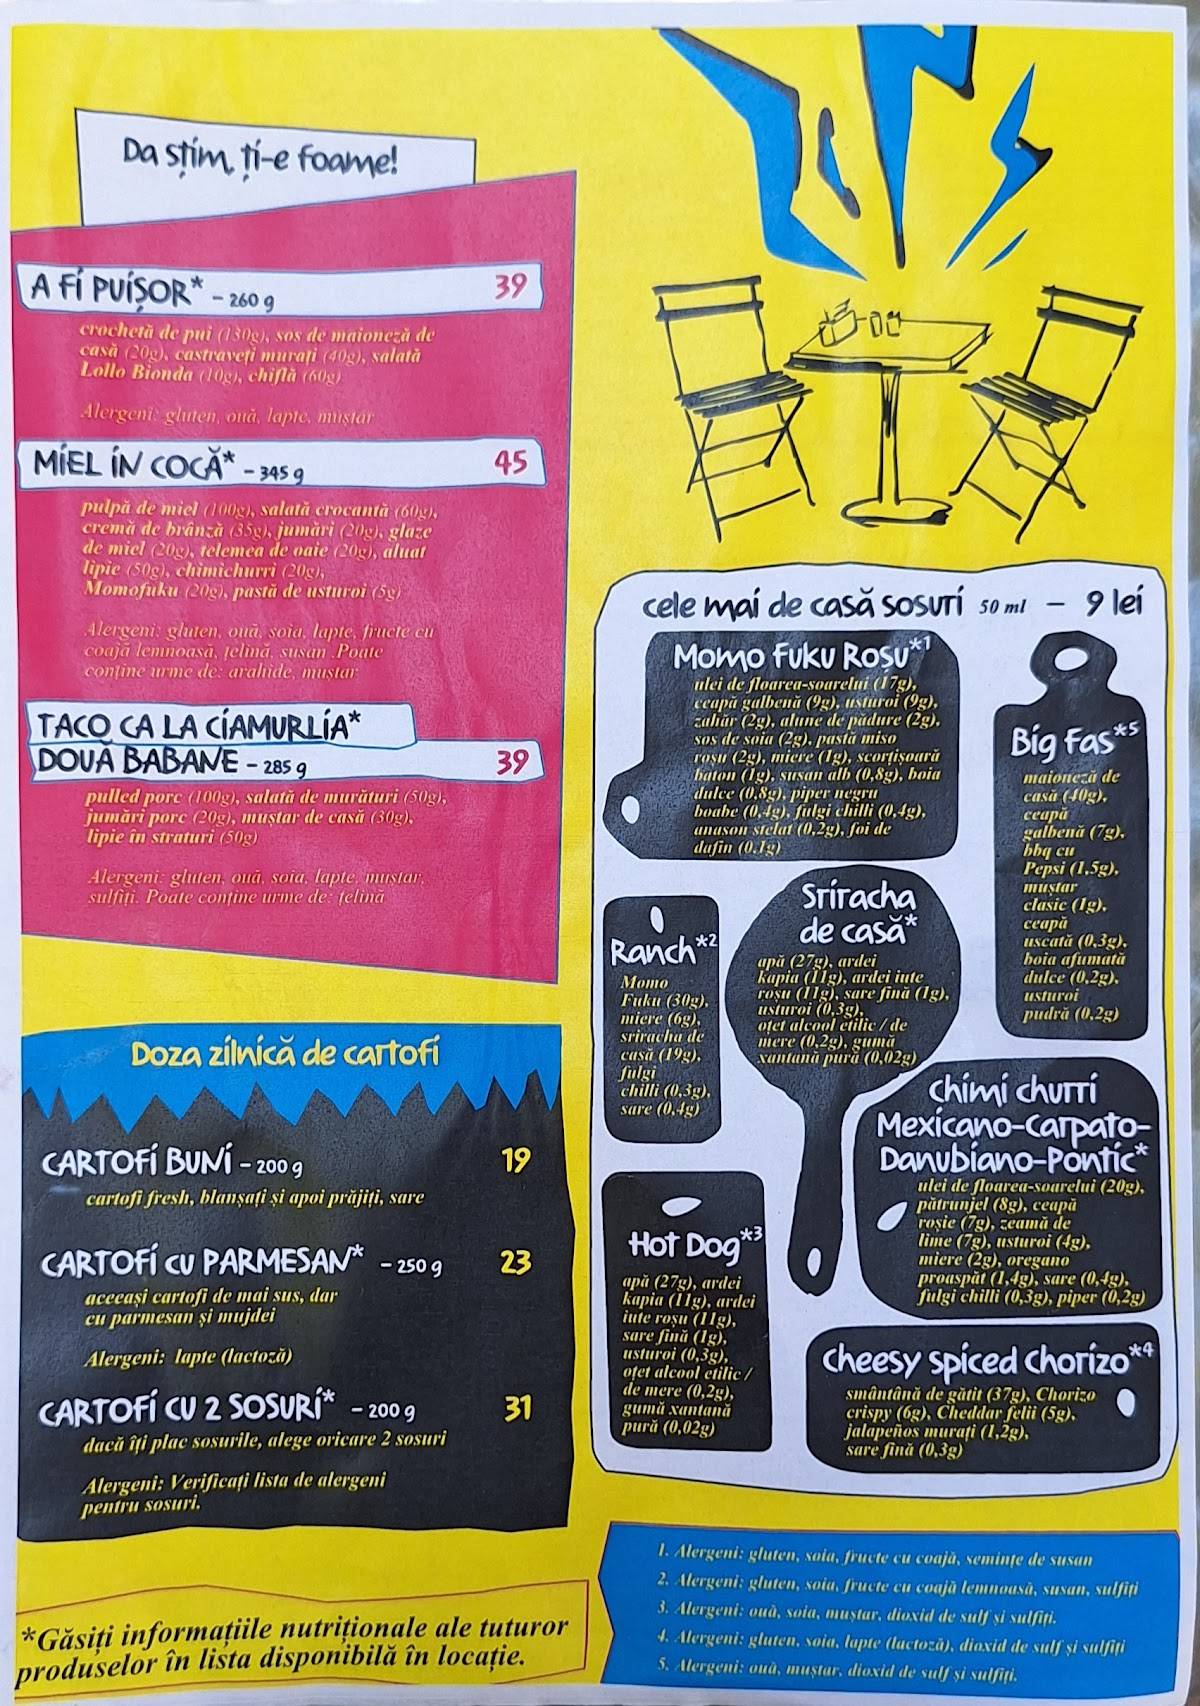 Da știm, ți-e foame!
A FI PUIȘOR* – 260 g 39
crochetă de pui (130g), sos de maioneză de
casă (20g), castraveți murați (40g), salată
Lollo Bionda (10g), chiflă (60g)
Alergeni: gluten, ouă, lapte, muștar
MIEL IN COCĂ* – 345 g 45
pulpă de miel (100g), salată crocantă (60g),
cremă de brânză (35g), jumări (20g), glaze
de miel (20g), telemea de oaie (20g), aluat
lipie (50g), chimichurri (20g),
Momofuku (20g), pastă de usturoi (5g)
Alergeni: gluten, ouă, soia, lapte, fructe cu
coajă lemnoasă, țelină, susan .Poate
conține urme de: arahide, muștar
TACO CA LA CIAMURLIA*
DOUĂ BABANE – 285 g 39
pulled porc (100g), salată de murături (50g),
jumări porc (20g), muștar de casă (30g),
lipie în straturi (50g)
Alergeni: gluten, ouă, soia, lapte, muștar,
sulfiți. Poate conține urme de: țelină
Doza zilnică de cartofi
CARTOFI BUNI – 200 g 19
cartofi fresh, blanșați și apoi prăjiți, sare
CARTOFI CU PARMESAN* – 250 g 23
aceeași cartofi de mai sus, dar
cu parmesan și mujdei
Alergeni: lapte (lactoză)
CARTOFI CU 2 SOSURI* – 200 g 31
dacă îți plac sosurile, alege oricare 2 sosuri
Alergeni: Verificați lista de alergeni
pentru sosuri.
*Găsiți informațiile nutriționale ale tuturor
produselor în lista disponibilă în locație.
cele mai de casă sosuri 50 ml – 9 lei
Momo Fuku Roșu*1
ulei de floarea-soarelui (17g),
ceapă galbenă (9g), usturoi (9g),
zahăr (2g), alune de pădure (2g),
sos de soia (2g), pastă miso
roșu (2g), miere (1g), scorțișoară
baton (1g), susan alb (0,8g), boia
dulce (0,8g), piper negru
boabe (0,4g), fulgi chilli (0,4g),
anason stelat (0,2g), foi de
dafin (0,1g)
Big Fas*5
maioneză de
casă (40g),
ceapă
galbenă (7g),
bbq cu
Pepsi (1,5g),
muștar
clasic (1g),
ceapă
uscată (0,3g),
boia afumată
dulce (0,2g),
usturoi
pudră (0,2g)
Ranch*2
Momo
Fuku (30g),
miere (6g),
sriracha de
casă (19g),
fulgi
chilli (0,3g),
sare (0,4g)
Sriracha
de casă*
apă (27g), ardei
kapia (11g), ardei iute
roșu (11g), sare fină (1g),
usturoi (0,3g),
oțet alcool etilic / de
mere (0,2g), gumă
xantană pură (0,02g)
Chimi churri
Mexicano-Carpato-
Danubiano-Pontic*
ulei de floarea-soarelui (20g),
pătrunjel (8g), ceapă
roșie (7g), zeamă de
lime (7g), usturoi (4g),
miere (2g), oregano
proaspăt (1,4g), sare (0,4g),
fulgi chilli (0,3g), piper (0,2g)
Hot Dog*3
apă (27g), ardei
kapia (11g), ardei
iute roșu (11g),
sare fină (1g),
usturoi (0,3g),
oțet alcool etilic /
de mere (0,2g),
gumă xantană
pură (0,02g)
Cheesy spiced Chorizo*4
smântână de gătit (37g), Chorizo
crispy (6g), Cheddar felii (5g),
jalapeños murați (1,2g),
sare fină (0,3g)
1. Alergeni: gluten, soia, fructe cu coajă, semințe de susan
2. Alergeni: gluten, soia, fructe cu coajă lemnoasă, susan, sulfiți
3. Alergeni: ouă, soia, muștar, dioxid de sulf și sulfiți.
4. Alergeni: gluten, soia, lapte (lactoză), dioxid de sulf și sulfiți
5. Alergeni: ouă, muștar, dioxid de sulf și sulfiți.